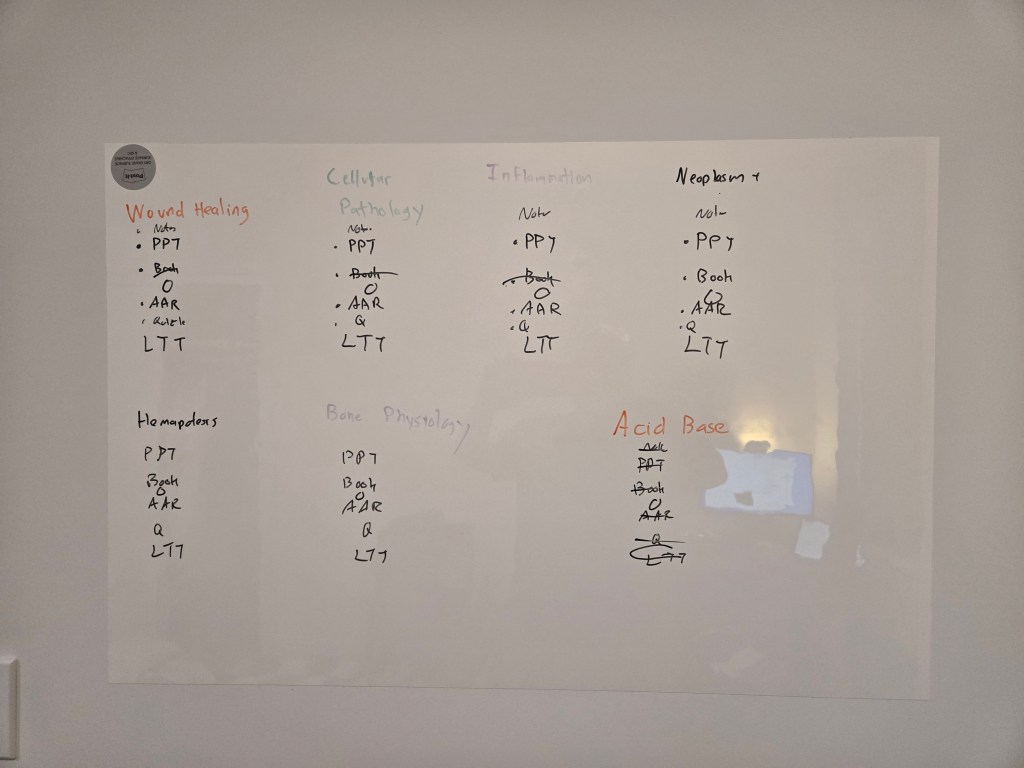 Wound Healing
Notes
• PPT
• Book
O
• AAR
LTT
Cellular
Pathology
Not.
• PPT
• Book
O
• AAR
• Q
LTT
Inflammation
Note
• PPT
• Book
O
• AAR
• Q
LTT
Neoplasm +
Note
• PPT
• Book
O
• AAR
• Q
LTT
PPT
Book
O
AAR
Q
LTT
Bone Physiology
PPT
Book
O
AAR
Q
LTT
Acid Base
Note
PPT
Book
O
AAR
Q
LTT